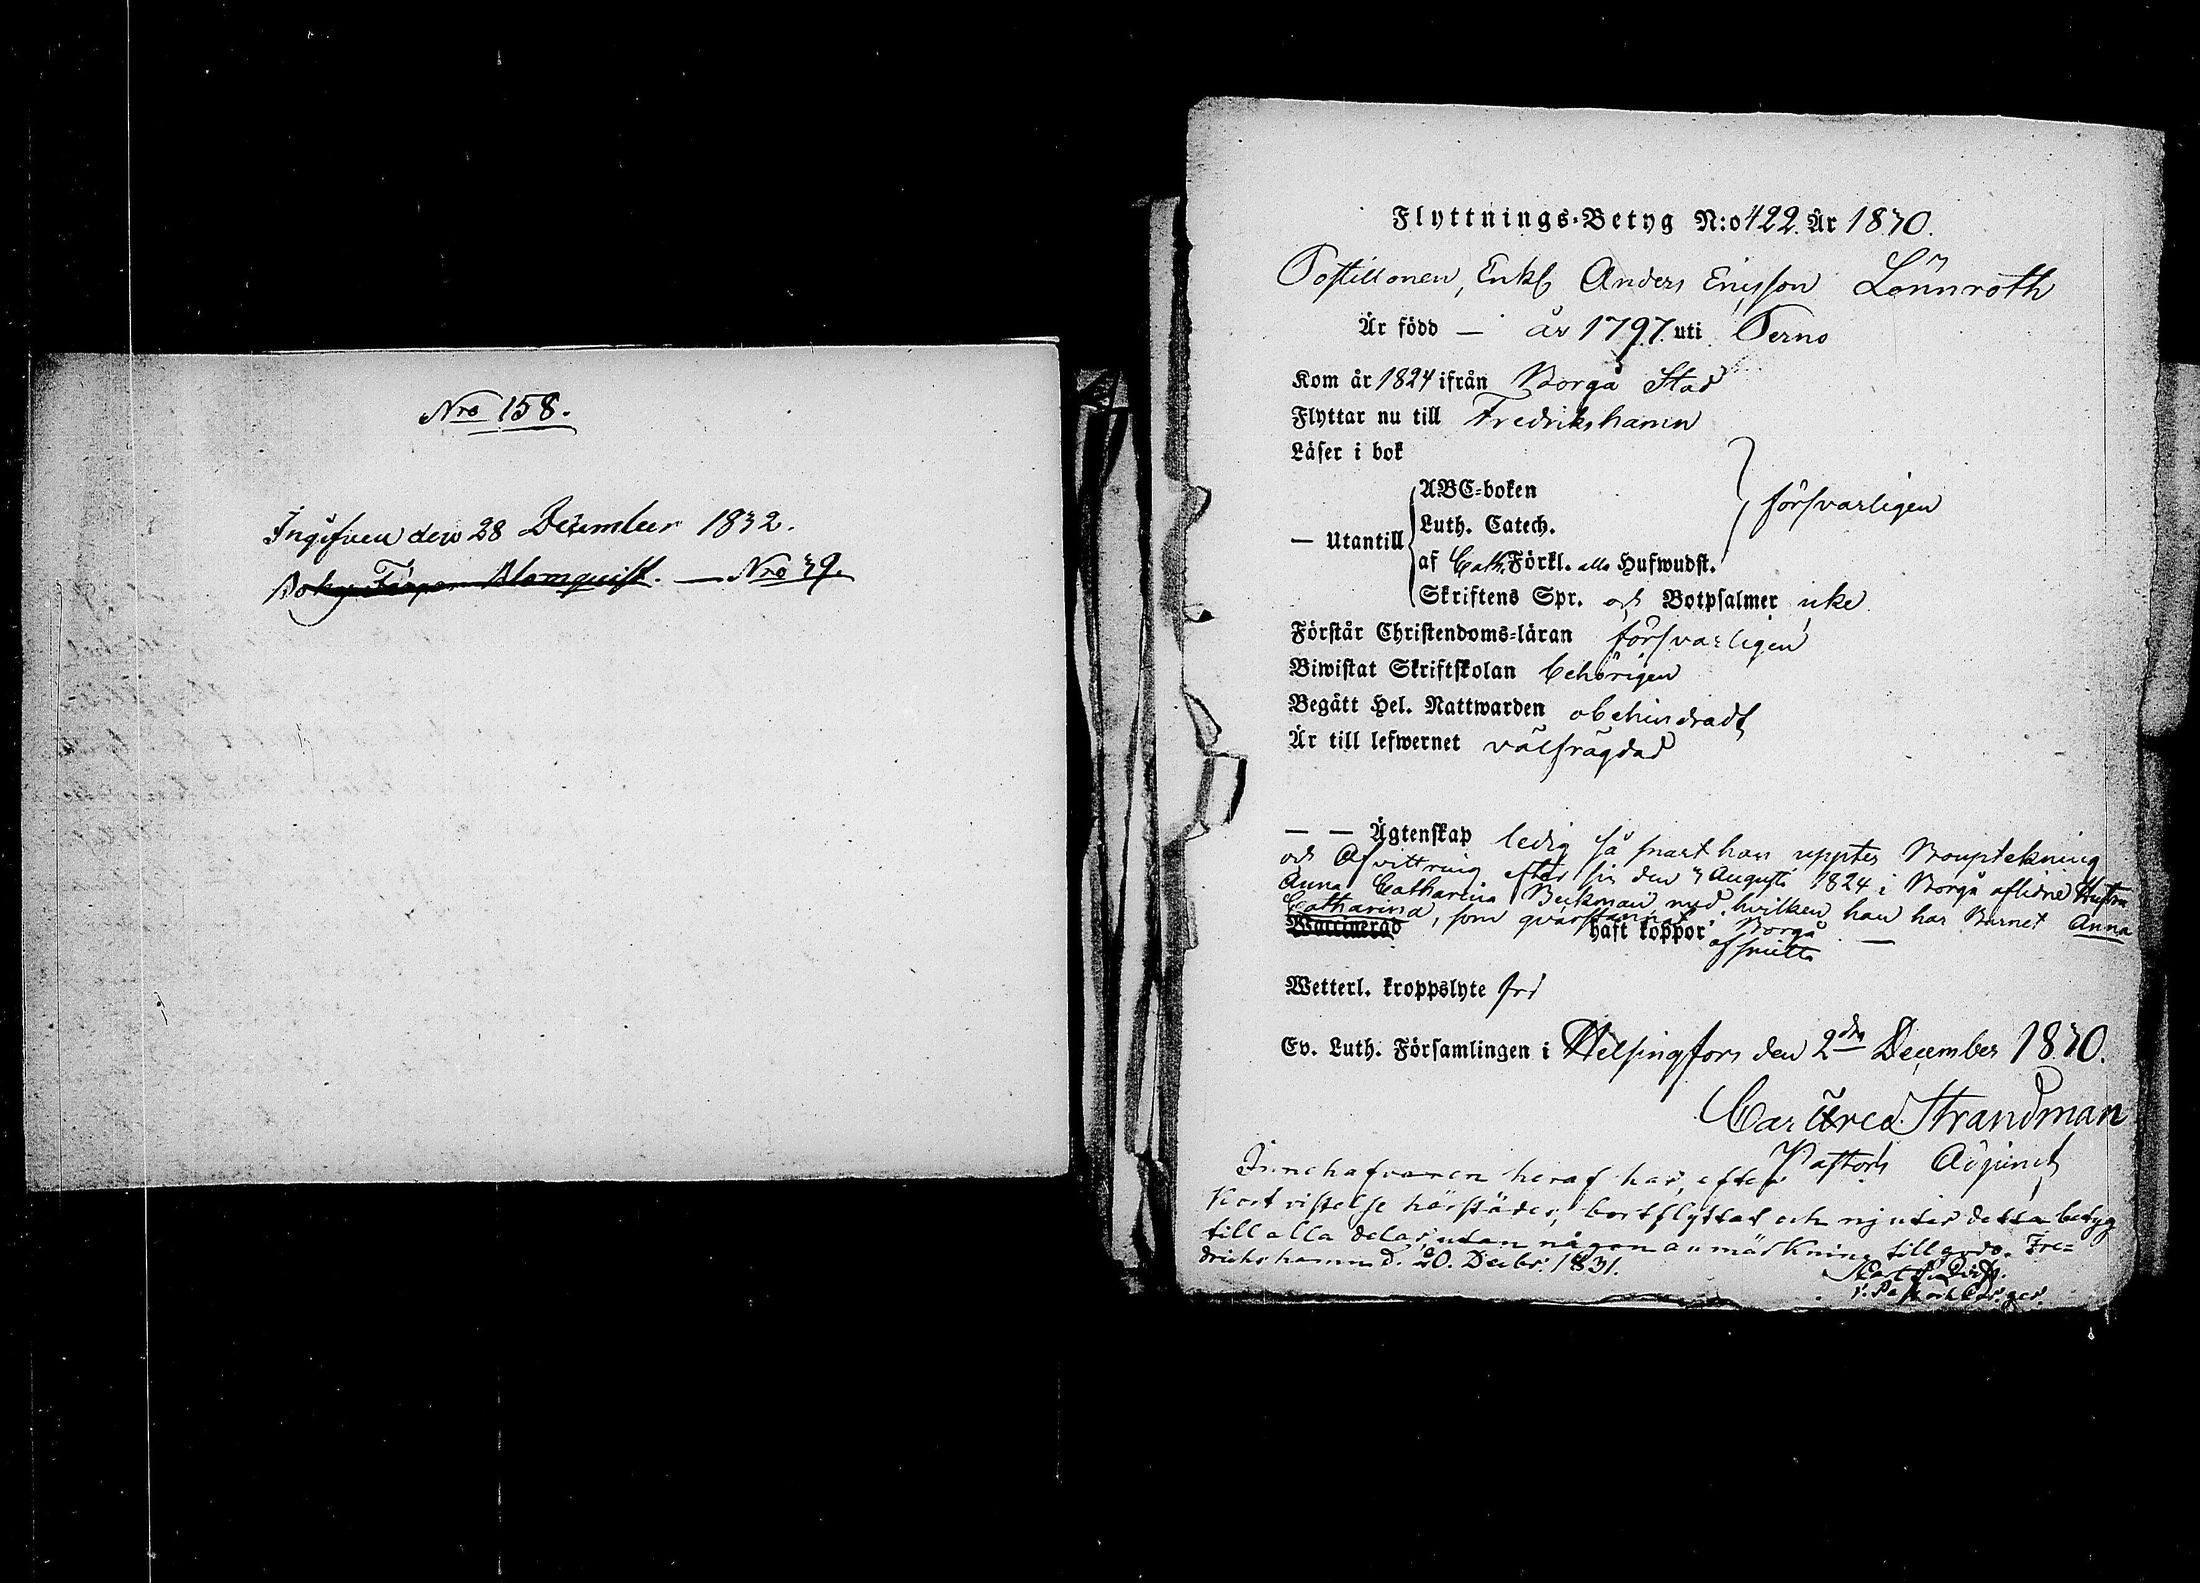 Nro 158.
Ingifven den 28 December 1832.
Blomquist. — Nro 39.
Flyttnings-Betyg N:o 422. År 1830.
Postillonen, Enkl. Anders Ericsson Lönnroth
Är född — år 1797. uti Perno
Kom år 1824 ifrån Borgå Stad
Flyttar nu till Fredrikshamn
Läser i bok
ABC-boken
Luth. Catech.
försvarligen
— Utantill
af Cath. Förkl. alla Hufwudst.
Skriftens Spr. och Botpsalmer icke
Förstår Christendoms-läran försvarligen
Biwistat Skriftskolan behörigen
Begått Hel. Nattwarden obehindradt
Är till lefwernet välfrägdad
— — Ägtenskap ledig så snart han uppter Bouptekning
och Afvittring efter sin den 3 Augusti 1824 i Borgå aflidne Hustru
Anna Catharina Beckman med hvilken han har Barnet Anna
Catharina, som qvarstannat i Borgå —
Waccinerad haft koppor
Wetterl. kroppslyte fri
Ev. Luth. Församlingen i Helsingfors den 2dra December 1830.
Strandman
Pastors Adjunct
Innehafvaren heraf har, efter
kort vistelse härstädes, bortflyttat och njuter detta betyg
till alla delar, utan någon anmärkning till godo. Fre=
drichshamn d. 20. Decbr. 1831.